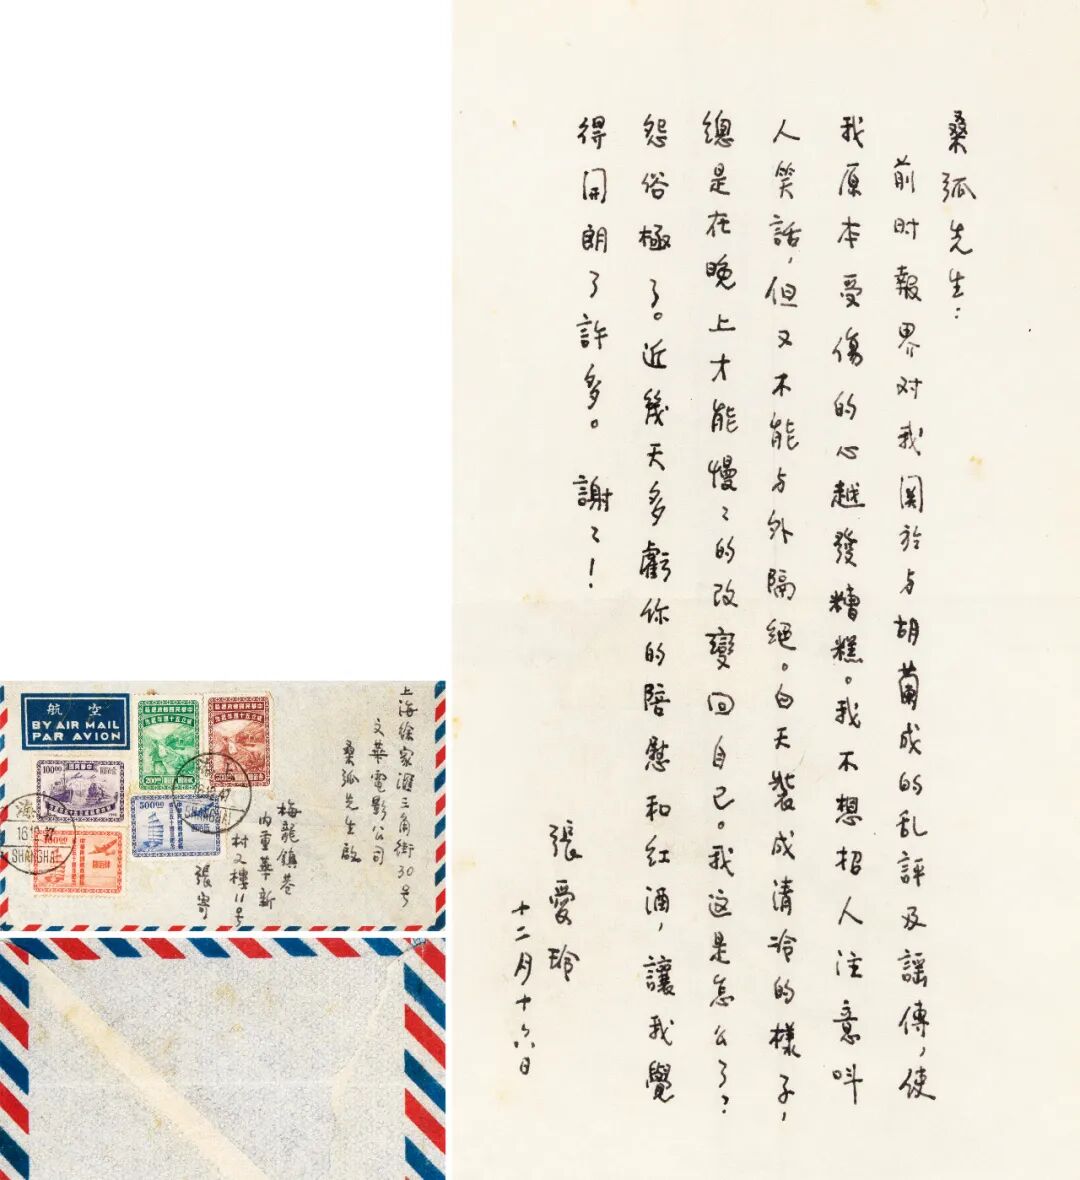 桑弧先生：
前时報界对我関於与胡蘭成的乱評及謡傳，使
我原本受傷的心越發糟糕。我不想招人注意叫
人笑話，但又不能与外隔絕。白天裝成清冷的樣子，
總是在晚上才能慢〻的改變回自己。我这是怎么了？
怨俗極了。近幾天多虧你的陪慰和红酒，讓我覺
得開朗了許多。謝〻！
張愛玲
十二月十六日
航空
BY AIR MAIL
PAR AVION
上海徐家滙三角街30号
文華電影公司
桑弧先生啟
梅龍鎮巷
内重華新
村又樓11号
張寄
200.00
100.00
500.00
海
SHANGHAI
上海
SHANGHAI